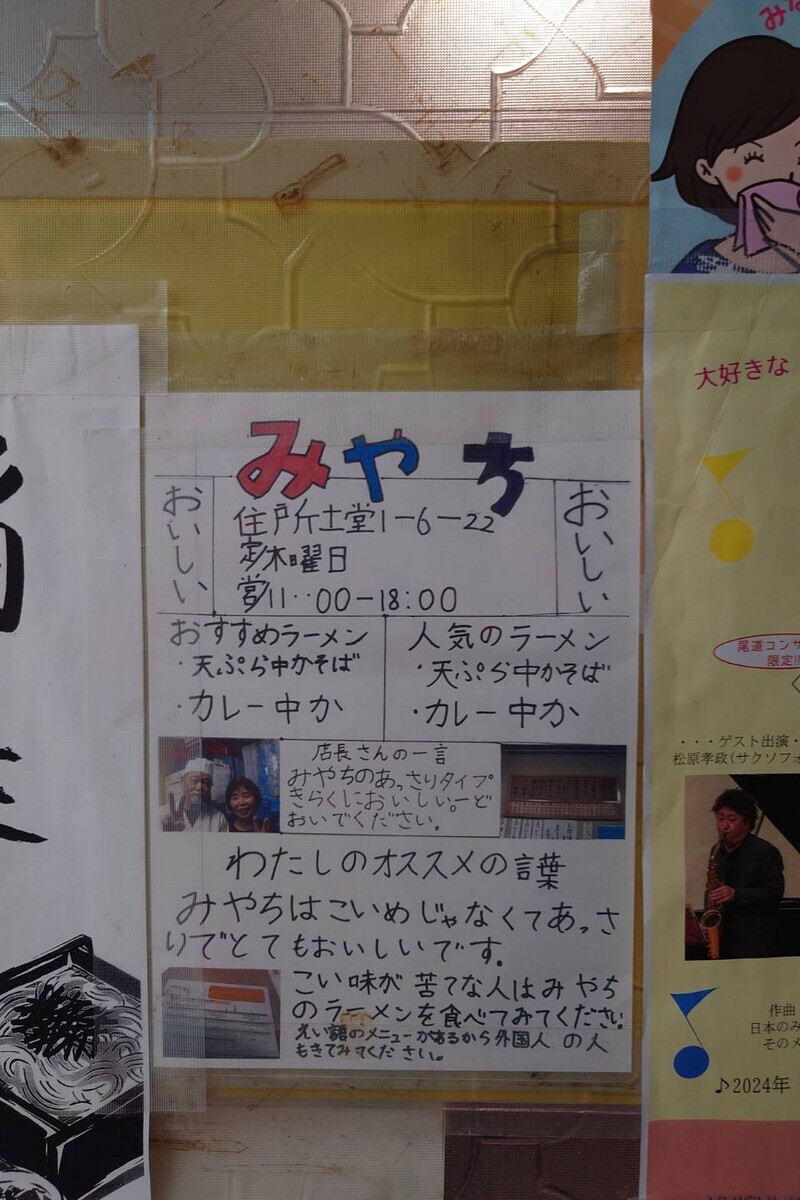 みな
大好きな
みやち
おいしい
住戸斤土堂1-6-22
定木曜日
営11:00-18:00
おいしい
おすすめラーメン
・天ぷら中かそば
・カレー中か
人気のラーメン
・天ぷら中かそば
・カレー中か
店長さんの一言
みやちのあっさりタイプ
きらくにおいしい。ーど
おいでください。
わたしのオススメの言葉
みやちはこいめじゃなくてあっさ
りでとてもおいしいです。
こい味が苦てな人はみやち
のラーメンを食べてみてください。
えい語のメニューがあるから外国人の人
もきてみてください。
尾道コンサ
限定!!
・・・ゲスト出演・
松原孝政(サクソフォ
作曲
日本のみ
そのメ
♪2024年